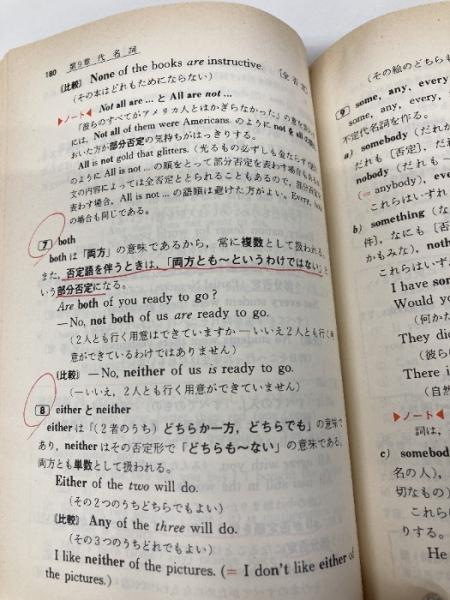 180 第9章 代名詞
〔比較〕 None of the books are instructive. 〔全否定〕
(その本はどれもためにならない)
▶ノート◀ Not all are ... と All are not ...
「彼らのすべてがアメリカ人とはかぎらなかった」の意を
には, Not all of them were Americans. のように not を all の
おいた方が部分否定の気持ちがはっきりする。
All is not gold that glitters. (光るもの必ずしも金ならず)
のように All is not ... の順をとって部分否定を表わす場合も
文の内容によっては全否定ととられることもあるので, 部分否定
表わす場合, All is not ... の語順は避けた方がよい。Every, both
の場合も同じである。
7 both
both は「両方」の意味であるから, 常に複数として扱われる。
また, 否定語を伴うときは,「両方とも〜というわけではない」と
いう部分否定になる。
Are both of you ready to go?
—No, not both of us are ready to go.
(2人とも行く用意はできていますか—いいえ2人とも行く用
意ができているわけではありません)
〔比較〕 —No, neither of us is ready to go.
(—いいえ, 2人とも行く用意ができていません)
8 either と neither
either は「(2者のうち) どちらか一方, どちらでも」の意味で
あり, neither はその否定形で「どちらも〜ない」の意味である。
両方とも単数として扱われる。
Either of the two will do.
(その2つのうちどれでもよい)
〔比較〕 Any of the three will do.
(その3つのうちどれでもよい)
I like neither of the pictures. (= I don't like either of
the pictures.)
(その絵のどちらも
9 some, any, every
some, any, every,
不定代名詞を作る。
a) somebody (だれか
だれも [否定], だれ
nobody (だれも〜
(= anybody), every
これらはいずれ
b) something (な
件], なにも [否
かもみな), noth
これらはいず
I have som
Would you
(何かた
They die
(彼ら
These
(自然
▶ノート◀
詞は,
c) somebody
名の人),
切なもの)
これら
りする。
He